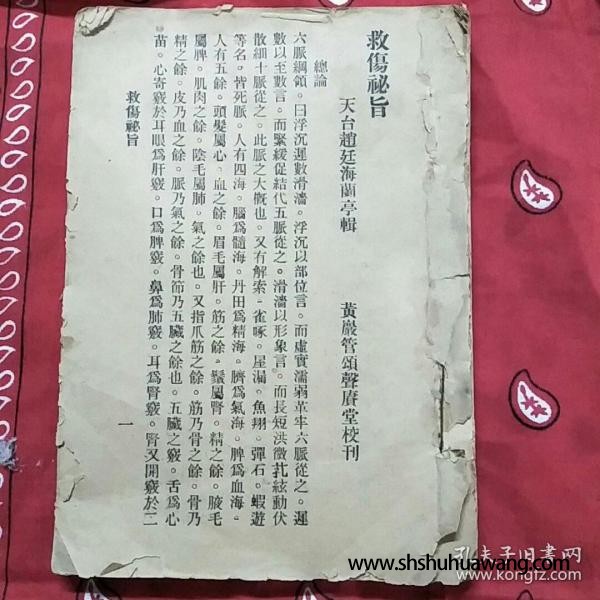 救傷祕旨
天台趙廷海蘭亭輯
黃巖管頌聲賡堂校刊
總論
六脈綱領。曰浮沉遲數滑濇。浮沉以部位言。而虛實濡弱革牢六脈從之。遲
數以至數言。而緊緩促結代五脈從之。滑濇以形象言。而長短洪微芤絃動伏
散細十脈從之。此脈之大概也。又有解索。雀啄。屋漏。魚翔。彈石。蝦遊
等名。皆死脈。人有四海。腦爲髓海。丹田爲精海。臍爲氣海。脾爲血海。
人有五餘。頭髮屬心。血之餘。眉毛屬肝。筋之餘。鬚屬腎。精之餘。腋毛
屬脾。肌肉之餘。陰毛屬肺。氣之餘也。又指爪筋之餘。筋乃骨之餘。骨乃
精之餘。皮乃血之餘。脈乃氣之餘。骨節乃五臟之餘也。五臟之竅。舌爲心
苗。心寄竅於耳眼爲肝竅。口爲脾竅。鼻爲肺竅。耳爲腎竅。腎又開竅於二
救傷祕旨
一
www.shshuhuawang.com
孔夫子旧書网
www.kongfz.com